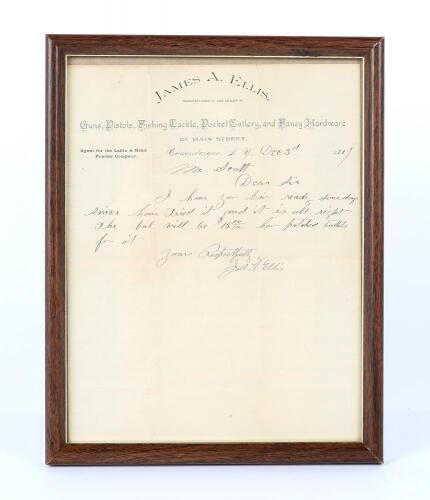 JAMES A. ELLIS,
MANUFACTURER OF AND DEALER IN
Guns, Pistols, Fishing Tackle, Pocket Cutlery, and Fancy Hardware
MAIN STREET.
Agent for the Laflin & Rand
Powder Company.
Canandaigua N. Y. Dec 3d
Mr Scott
Dear Sir
I have your ready some days
since have tried it and it is all right
The bal will be $15.00 bullets
for it
Yours Respectfully
Jas A Ellis